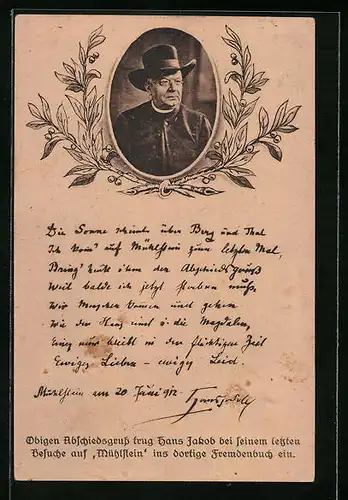 Die Sonne scheint über Berg und Thal
Ich komm' auf Mühlstein zum letzten Mal,
Bring' heute ihm den Abschiedsgruß
Weil balde ich jetzt sterben muß.
Wir Menschen kommen und gehen
Wie der Hans und die Magdalen,
Eines nur bleibt in der flüchtigen Zeit
Ewiges Lieben – ewiges Leid.
Mühlstein am 20 Juni 912. Hansjakob
Obigen Abschiedsgruß trug Hans Jakob bei seinem letzten
Besuche auf „Mühlstein" ins dortige Fremdenbuch ein.